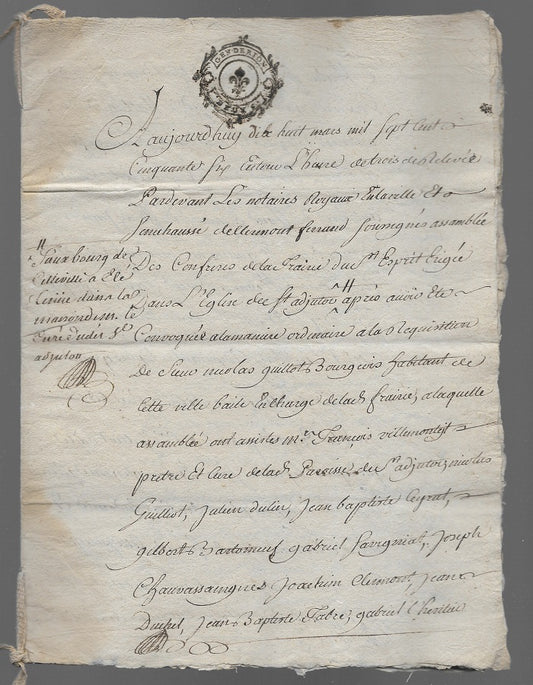 GEN DE RIOM
Aujourdhuy dix huit mars mil sept cent
Cinquante six Environ L'heure de trois de Relevée
Pardevant Les notaires Royaux En la ville Et
Senchaussé de Clermont ferrand Soussignés assamblée
Des Confreres de la fraire du St Esprit Erigée
dans L'Eglise de St adjutor H aprés avoir Eté
Convoquée a la maniere ordinaire a la Requisition
De Sieur nicolas guillot Bourgeois habitant de
Cette ville baile En Charge de lad. fraire, a laquelle
assamblée ont assistés mre. François villemontest
pretre Et Curé de lad. Paroisse de St adjutor, nicolas
Guilliot, Julien dulier, Jean baptiste Ceyrat,
gilbert Bartomeuf, gabriel Savignat, Joseph
Chauvassaingnes Joachim Clemont, Jean
Duchet, Jean Baptiste Fabre, gabriel L'heritier
H
faux bourg de
Cette ville a Eté
tenue dans la
maison de mr. le
Curé dudit St.
adjutor